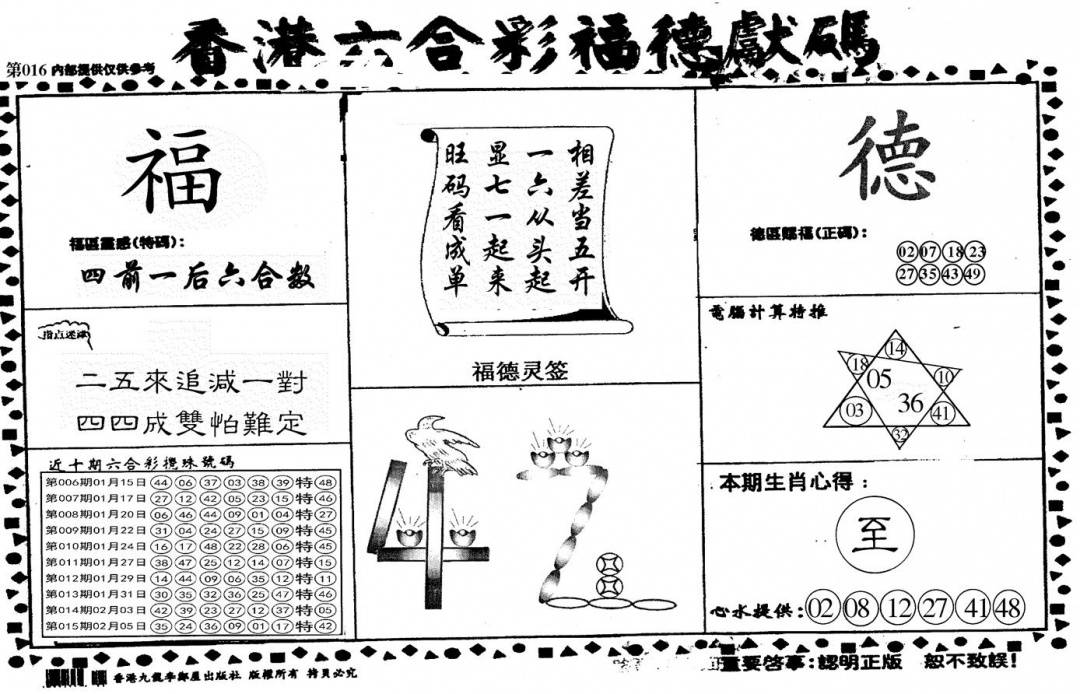 香港六合彩福德獻碼
第016 内部提供仅供参考
福
福區靈感(特碼):
四前一后六合数
指点迷津
二五來追減一對
四四成雙怕難定
近十期六合彩攪珠號碼
第006期01月15日 44 06 37 03 38 39 特 48
第007期01月17日 27 12 42 05 23 15 特 46
第008期01月20日 06 46 44 09 01 04 特 27
第009期01月22日 31 04 24 27 15 09 特 45
第010期01月24日 16 17 48 22 28 06 特 45
第011期01月27日 38 47 25 12 14 07 特 15
第012期01月29日 14 44 09 06 35 12 特 11
第013期01月31日 30 35 32 36 25 47 特 46
第014期02月03日 42 39 23 27 12 37 特 05
第015期02月05日 35 24 36 09 01 17 特 42
相差当五开
一六从头起
显七一起来
旺码看成单
福德灵签
德
德區賜福(正碼):
02 07 18 23
27 35 43 49
電腦計算特推
14
18 05 10
03 36 41
32
本期生肖心得:
至
心水提供: 02 08 12 27 41 48
香港九龍李鄭屋出版社 版權所有 拷貝必究
重要啓事:認明正版 恕不致誤!